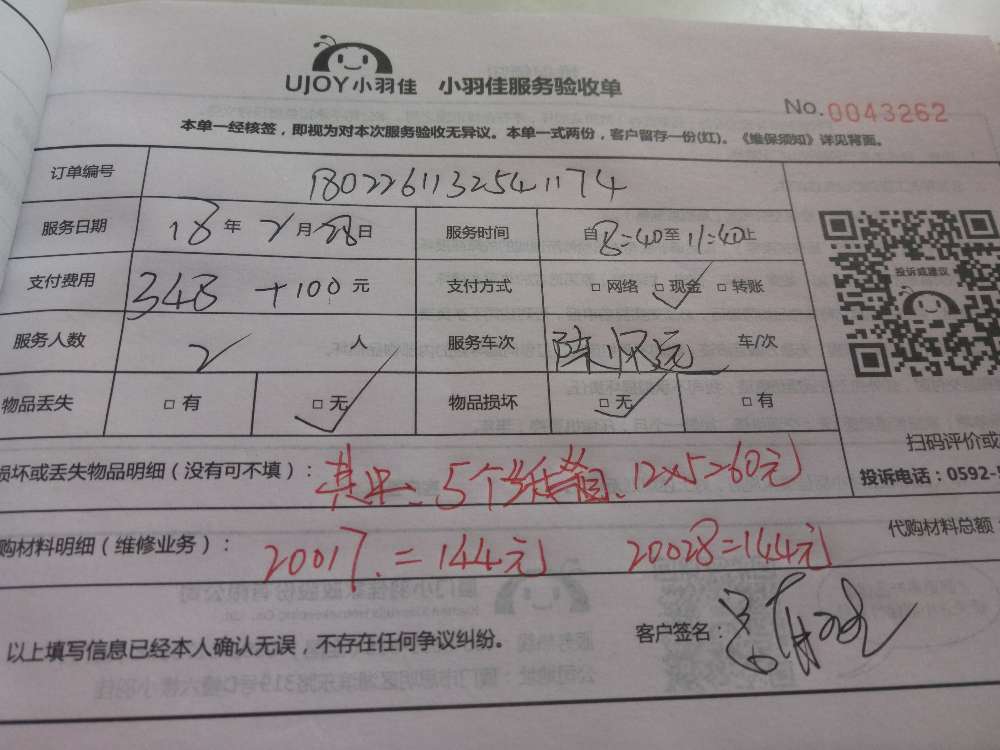 UJOY小羽佳 小羽佳服务验收单
No.0043262
本单一经核签，即视为对本次服务验收无异议。本单一式两份，客户留存一份(红)。《维保须知》详见背面。
订单编号 180226113254 1174
服务日期 18年2月28日 服务时间 自8:40至11:40止
投诉或建议
支付费用 348+100元 支付方式 □网络 □现金 □转账
服务人数 2人 服务车次 车/次
物品丢失 □有 □无 物品损坏 □无 □有
扫码评价或
损坏或丢失物品明细（没有可不填）： 其中：5个 12×5=60元
投诉电话：0592-
购材料明细（维修业务）： 20017.=144元 20028=144元
代购材料总额
以上填写信息已经本人确认无误，不存在任何争议纠纷。 客户签名：